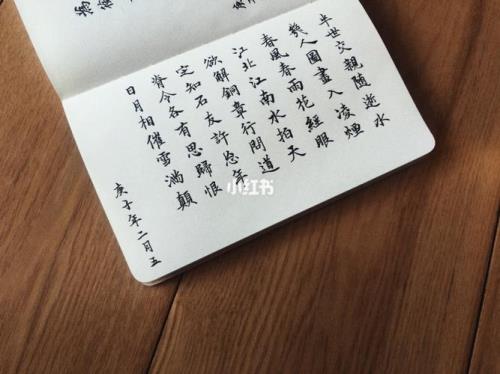 半世交親隨逝水
幾人圖畫入凌煙
春風春雨花經眼
江北江南水拍天
欲解銅章行問道
定知石友許忘年
脊令各有思歸恨
日月相催雪滿顛
庚子年二月五
小红书